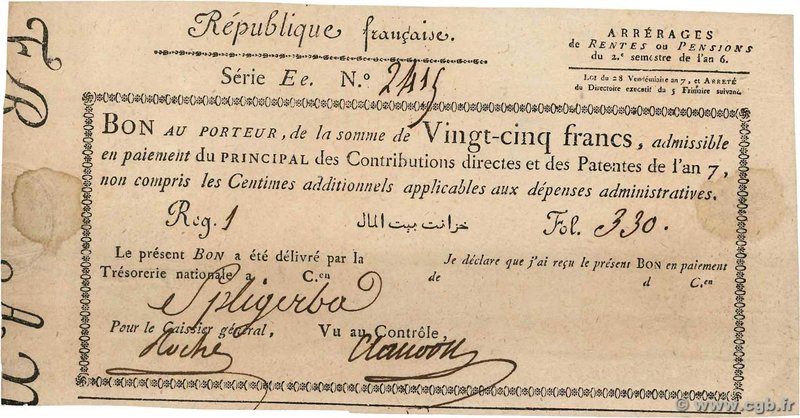 République française.
ARRÉRAGES
de RENTES ou PENSIONS
du 2.e semestre de l'an 6.
Série Ee. N.o 2415
Loi du 28 Vendémiaire an 7, et ARRÊTÉ
du Directoire executif du 5 Frimaire suivant.
BON AU PORTEUR, de la somme de Vingt-cinq francs, admissible
en paiement du PRINCIPAL des Contributions directes et des Patentes de l'an 7,
non compris les Centimes additionnels applicables aux dépenses administratives.
Reg. 1 خزانت بيت المال Fol. 330.
Le présent BON a été délivré par la
Trésorerie nationale a C.en
Je déclare que j'ai reçu le présent BON en paiement
de d C.en
Spligerba
Pour le Caissier général, Vu au Contrôle,
Roche
© www.cgb.fr